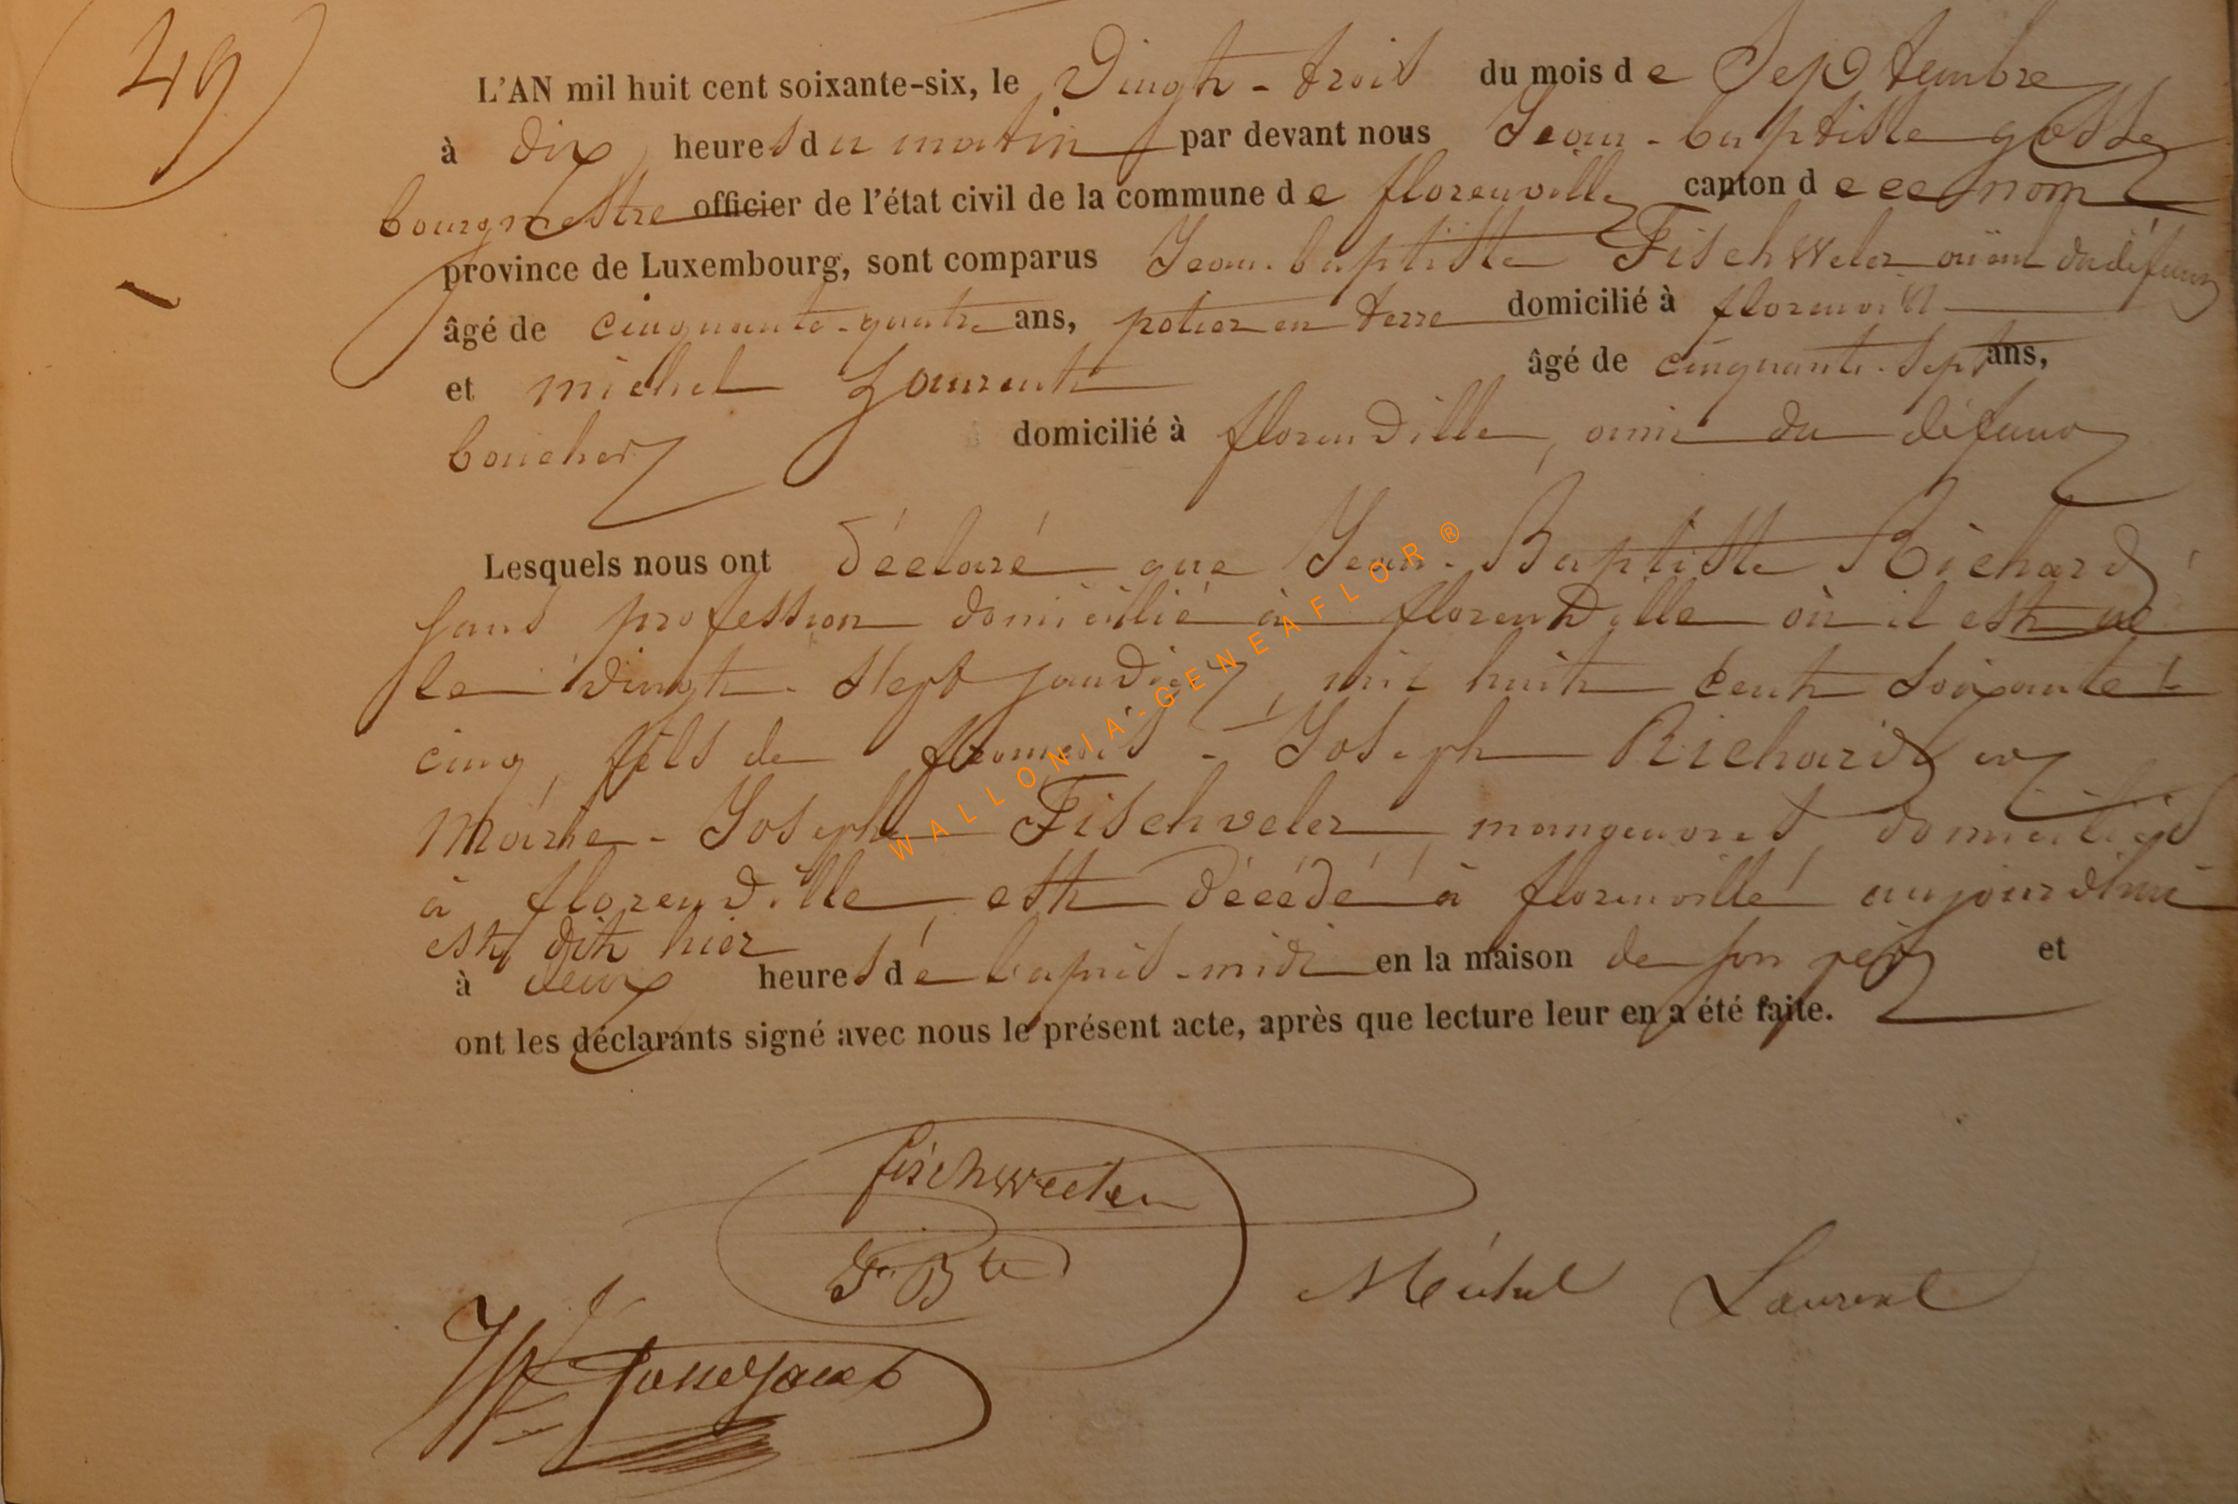 49
L'AN mil huit cent soixante-six, le vingt-trois du mois de Septembre
à dix heures du matin par devant nous Jean-baptiste gosse
bourgmestre officier de l'état civil de la commune de florenville canton de ce nom
province de Luxembourg, sont comparus Jean-baptiste Fischweler aïeul du défunt
âgé de cinquante-quatre ans, potier en terre domicilié à florenville
et michel Laurent âgé de cinquante-sept ans,
boucher domicilié à florenville, ami du défunt
Lesquels nous ont déclaré que Jean-Baptiste Richard
sans profession domicilié à florenville où il est né
le vingt-sept janvier, mil huit cent soixante-
cinq, fils de francois-Joseph Richard et
Marie-Josephe Fischveler, manœuvres, domiciliés
à florenville est décédé à florenville aujourdhui
est dit hier
à deux heures de l'après-midi en la maison de son père et
ont les déclarants signé avec nous le présent acte, après que lecture leur en a été faite.
fischweeler
J. Bte
Michel Laurent
WALLONIA-GENEAFLOR®